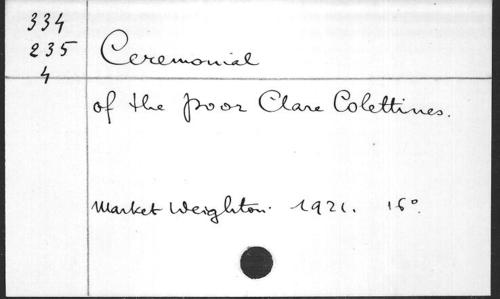 334
235
4
Ceremonial
of the poor Clare Colettines.
Market Weighton. 1921. 16°.